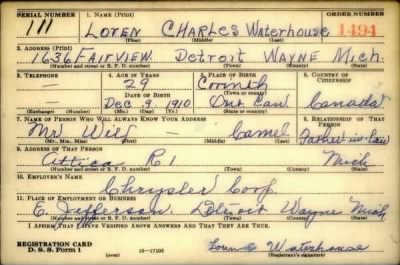 SERIAL NUMBER 1. NAME (Print) ORDER NUMBER
111 LOREN CHARLES Waterhouse 1494
(First) (Middle) (Last)
2. ADDRESS (Print)
1636 FAIRVIEW. Detroit WAYNE Mich.
(Number and street or R. F. D. number) (Town) (County) (State)
3. TELEPHONE 4. AGE IN YEARS 5. PLACE OF BIRTH 6. COUNTRY OF CITIZENSHIP
— 29 Corinth
DATE OF BIRTH (Town or county)
— Dec. 9, 1910 Ont Can Canada
(Exchange) (Number) (Mo.) (Day) (Yr.) (State or country)
7. NAME OF PERSON WHO WILL ALWAYS KNOW YOUR ADDRESS 8. RELATIONSHIP OF THAT PERSON
Mr Will — Camel Father-in-law
(Mr., Mrs., Miss) (First) (Middle) (Last)
9. ADDRESS OF THAT PERSON
Attica R1 Mich
(Number and street or R. F. D. number) (Town) (County) (State)
10. EMPLOYER'S NAME
Chrysler Corp.
11. PLACE OF EMPLOYMENT OR BUSINESS
E. Jefferson. Detroit Wayne Mich
(Number and street or R. F. D. number) (Town) (County) (State)
I AFFIRM THAT I HAVE VERIFIED ABOVE ANSWERS AND THAT THEY ARE TRUE.
REGISTRATION CARD
D. S. S. Form 1 (over) Loren C Waterhouse
(Registrant's signature)